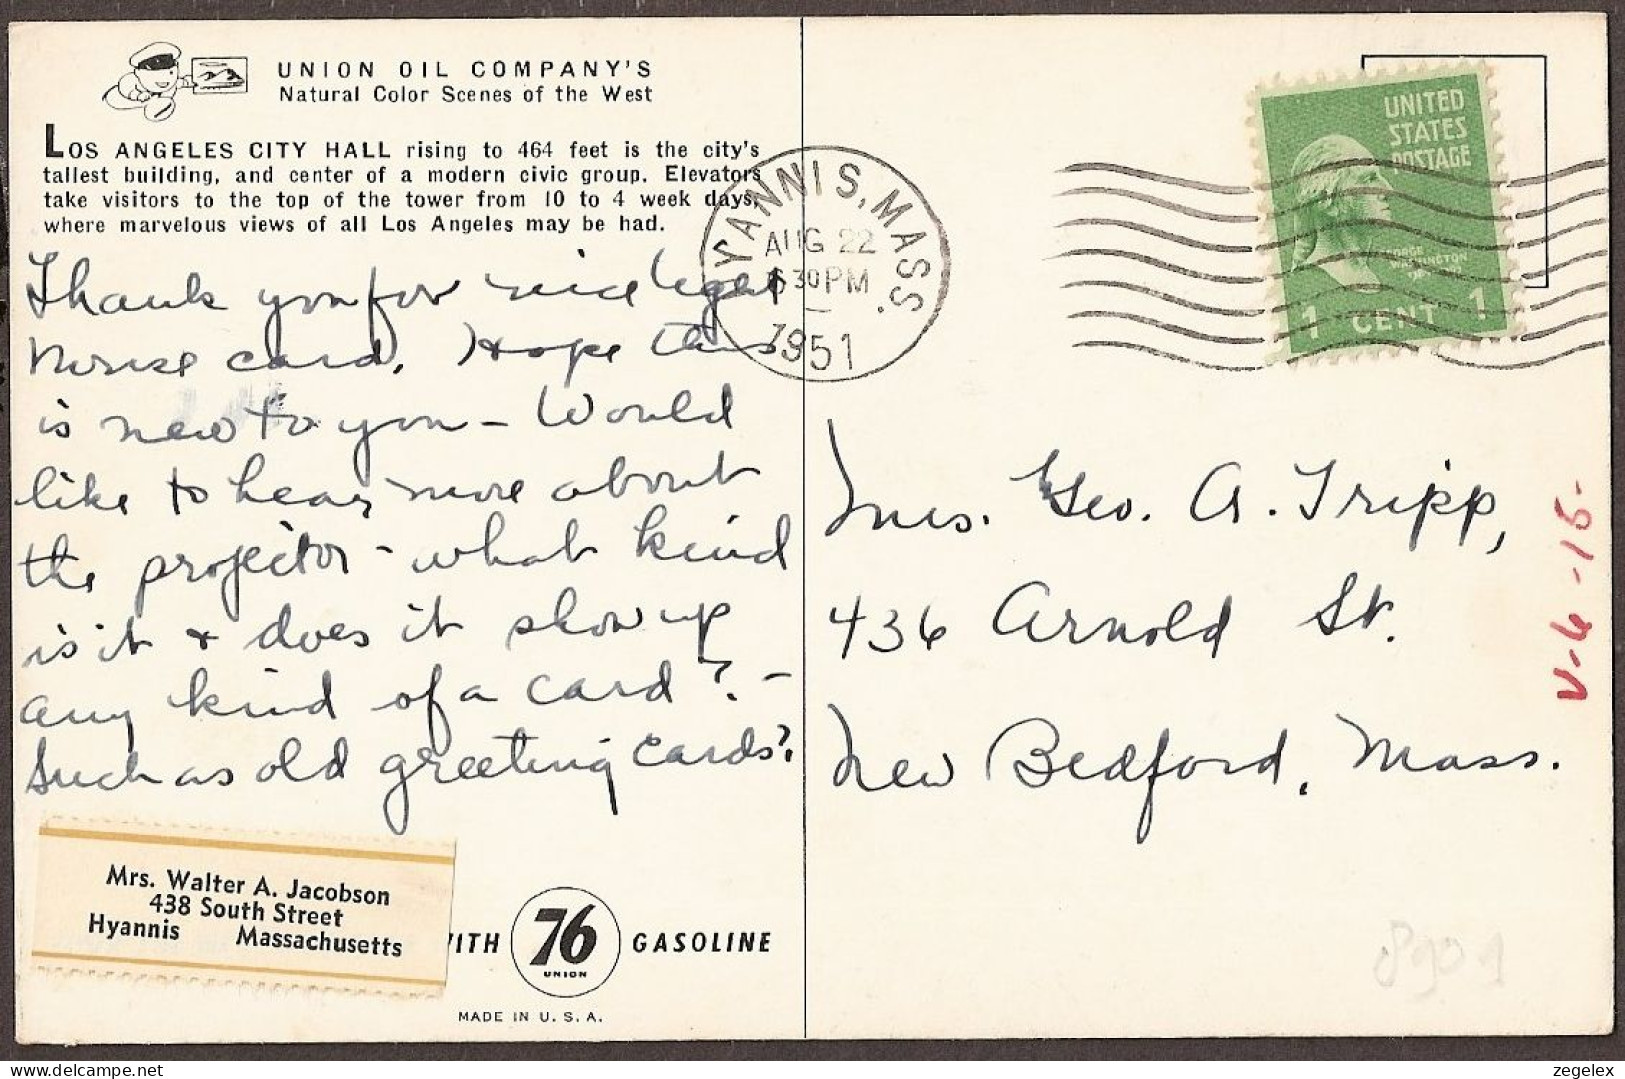 UNION OIL COMPANY'S
Natural Color Scenes of the West
LOS ANGELES CITY HALL rising to 464 feet is the city's
tallest building, and center of a modern civic group. Elevators
take visitors to the top of the tower from 10 to 4 week days,
where marvelous views of all Los Angeles may be had.
Thank you for nice
card. Hope this
is new to you - Would
like to hear more about
the projector - what kind
is it + does it show up
any kind of a card? -
Such as old greeting cards?
Mrs. Walter A. Jacobson
438 South Street
Hyannis Massachusetts
WITH 76 GASOLINE
UNION
MADE IN U. S. A.
YANNIS, MASS.
AUG 22
6 30 PM
1951
UNITED
STATES
POSTAGE
GEORGE
WASHINGTON
1 CENT 1
Mrs. Geo. A. Tripp,
436 Arnold St.
New Bedford, Mass.
V-6-15-
8909
delcampe.net
zegelex